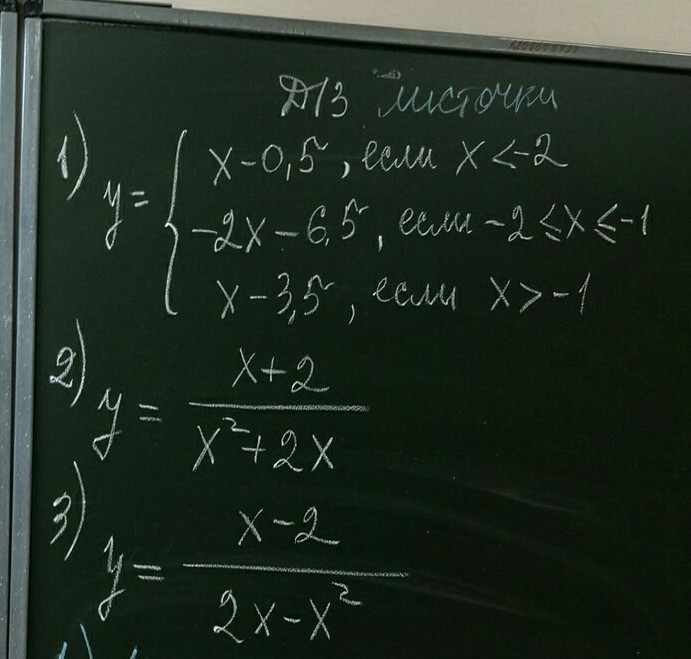 Д/З листочки
1) y = { x-0,5, если x<-2
-2x-6,5, если -2≤x≤-1
x-3,5, если x>-1
2) y = (x+2)/(x²+2x)
3) y = (x-2)/(2x-x²)